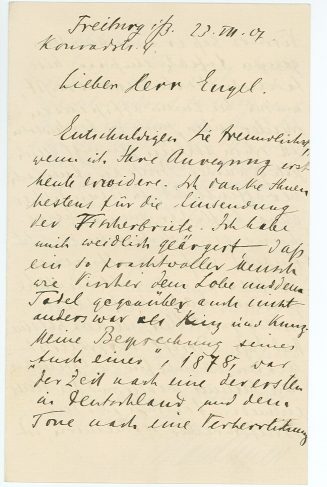 Freiburg i/B. 23. VII. 07
Konradstr. 4.
Lieber Herr Engel.
Entschuldigen Sie freundlichst,
wenn ich Ihre Anregung erst
heute erwidere. Ich danke Ihnen
bestens für die Einsendung
der Vischerbriefe. Ich habe
mich weidlich geärgert, daß
ein so prachtvoller Mensch
wie Vischer dem Lobe und dem
Tadel gegenüber auch nicht
anders war als Hinz und Kunz.
Meine Besprechung seines
"Auch einer", 1878, war
der Zeit nach eine der ersten
in Deutschland und dem
Tone nach eine Verherrlichung